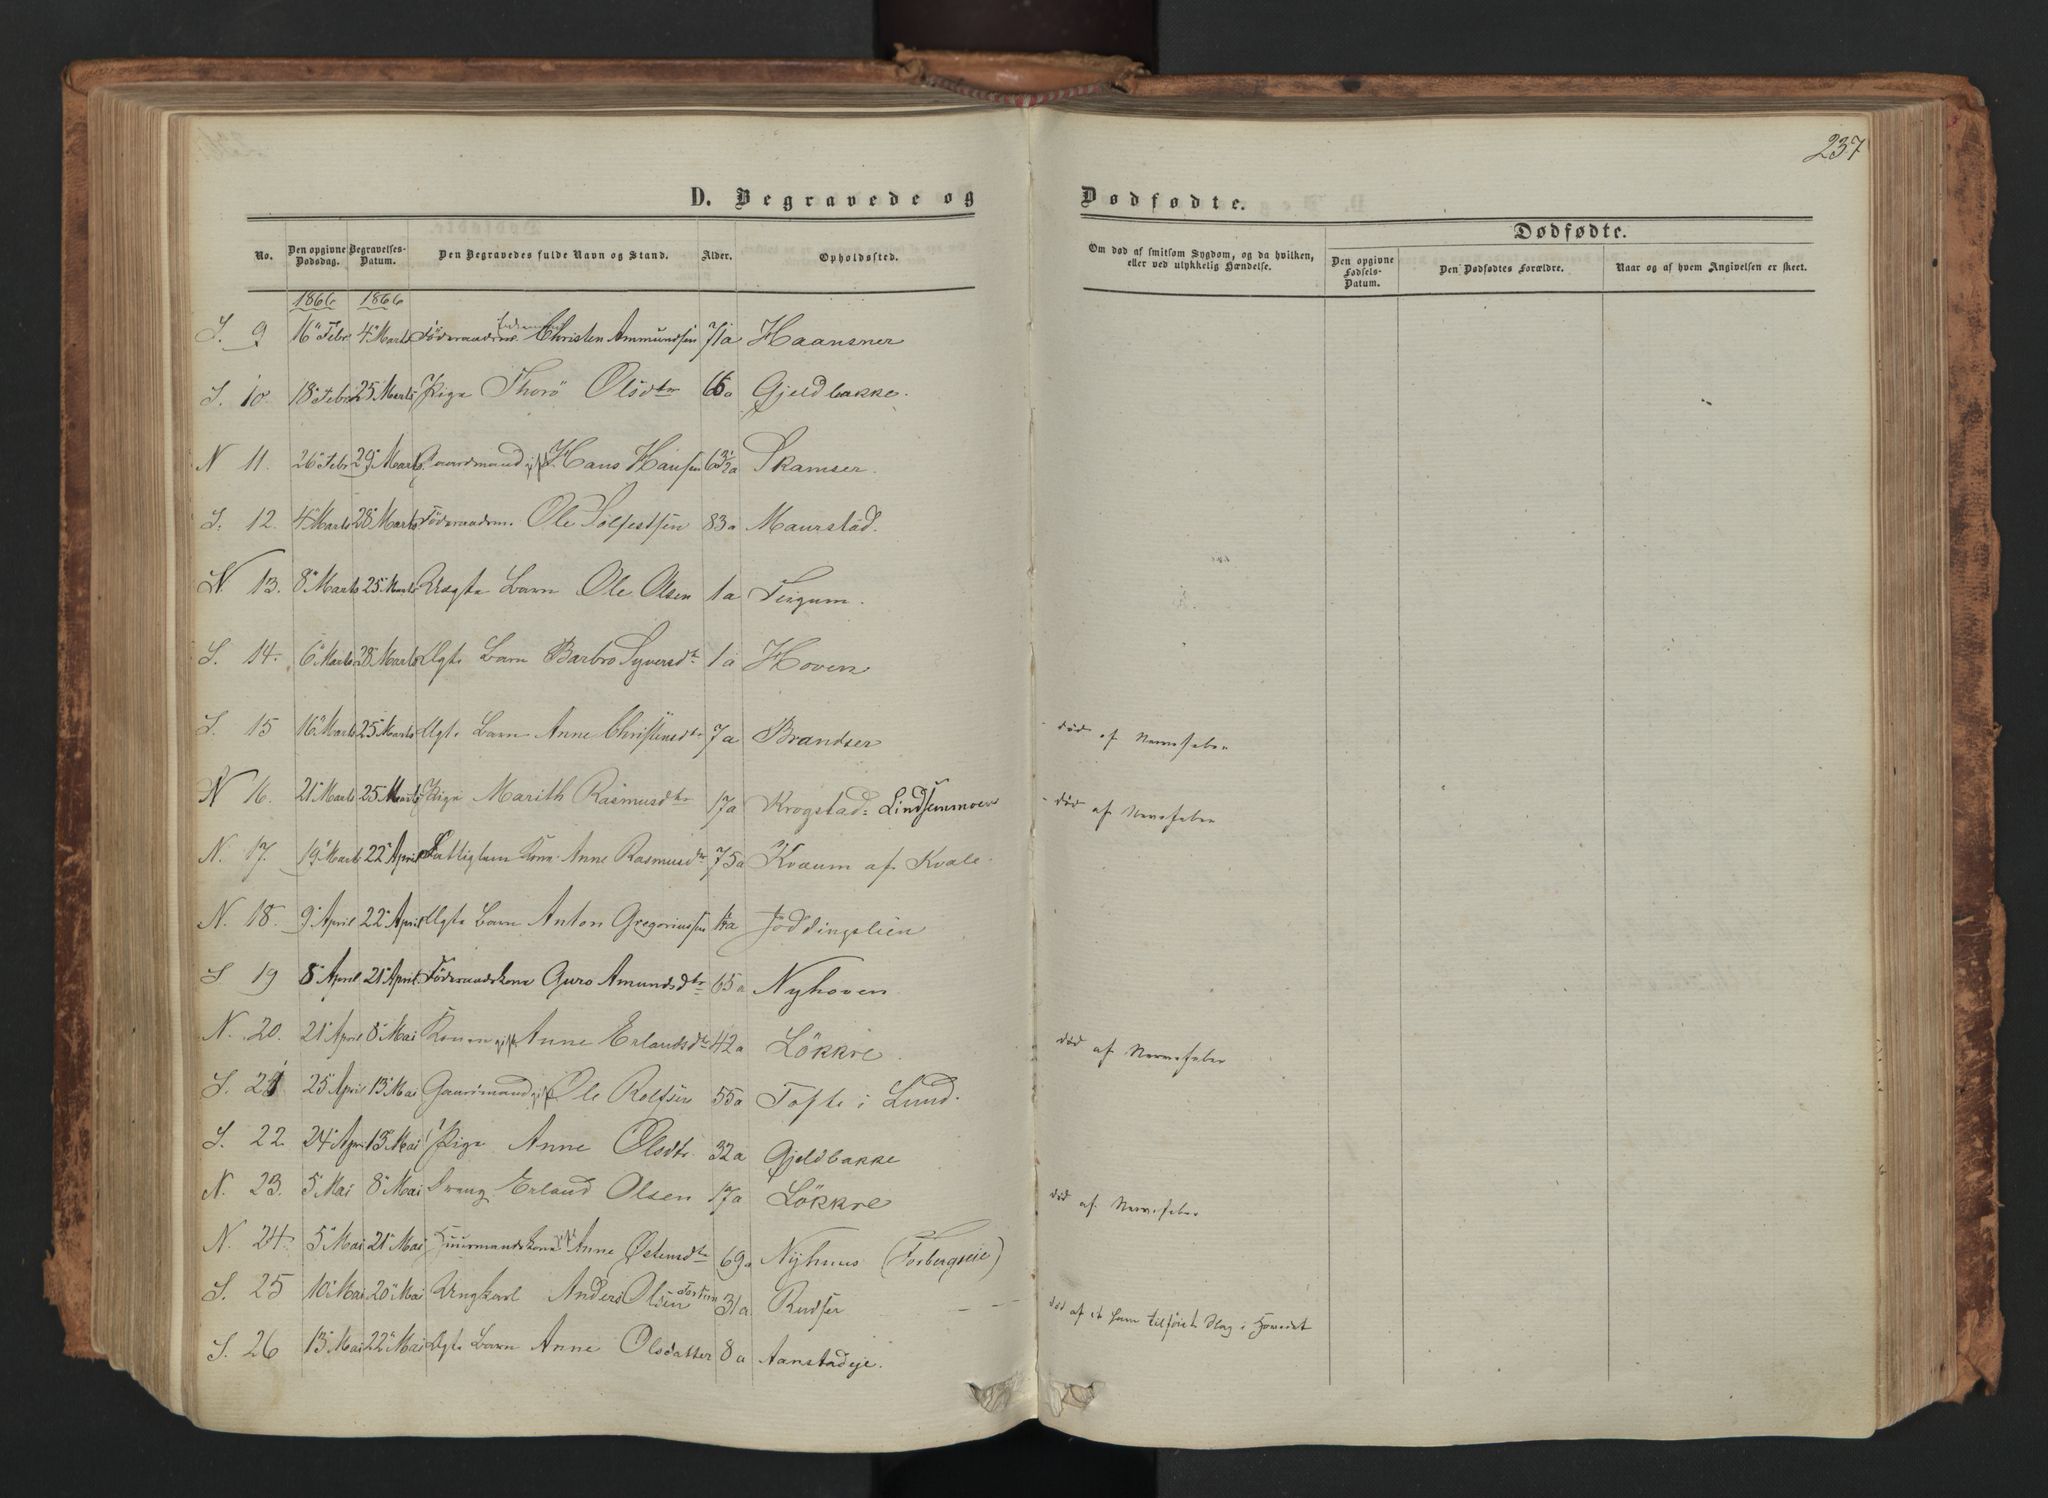 237
D. Begravede og Dødfødte.
No. Den opgivne Dødsdag. Begravelses-Datum. Den Begravedes fulde Navn og Stand. Alder. Opholdssted.
Om død af smitsom Sygdom, og da hvilken, eller ved ulykkelig Hændelse.
Dødfødte.
Den opgivne Fødsels-Datum. Den Dødfødtes Forældre. Naar og af hvem Angivelsen er skeet.
1866 1866
S. 9 16 Febr 4 Marts Föderaadsm. Christen Ammundsen 71a Haansner
S. 10. 18 Febr 25 Marts Pige Thorö Olsdtr 65a Gjeldbakke.
N 11. 26 Febr 29 Marts Gaardmand gift Hans Hansen 63½a Skamser.
S. 12. 4 Marts 28 Marts Föderaadsm. Ole Sölfestsen 83a Maurstad.
N. 13. 8 Marts 25 Marts Uægte Barn Ole Olsen 1a Teigum.
S. 14. 6 Marts 28 Marts Ægte Barn Barbro Syversdtr 1a Hoven
S. 15 16 Marts 25 Marts Ægte Barn Anne Christensdtr 7a Brandser - død af Nervefeber
N 16. 21 Marts 25 Marts Pige Marith Rasmusdtr 17a Krogstad: Lindsemmoen - død af Nervefeber
N. 17. 19 Marts 22 April Fattiglem Kone Anne Rasmusdtr 75a Kvaum af Kvale.
N. 18. 9 April 22 April Ægte Barn Anton Gregoriussen Jöddingslien
S 19 8 April 21 April Föderaadskone Guro Amundsdtr 65a Nyhoven
N. 20. 21 April 8 Mai Konen gift Anne Erlandsdtr 42a Lökkre. død af Nervefeber
S. 21 25 April 13 Mai Gaardmand gift Ole Rolfsen 55a Tofte i Lund.
S. 22. 24 Apr 13 Mai Pige Anne Olsdtr. 32a Gjeldbakke
N. 23. 5 Mai 8 Mai Dreng Erland Olsen 17a Lökkre død af Nervefeber
N. 24. 5 Mai 21 Mai Huusmandskone gift Anne Østensdtr 69a Nyhuus (Forbergseie)
S. 25 10 Mai 20 Mai Ungkarl Anders Olsen 31a Rudser - - død af et ham tilføiet Slag i Hovedet
S. 26 13 Mai 22 Mai Ægte Barn Anne Olsdatter 8a Aanstadeje.